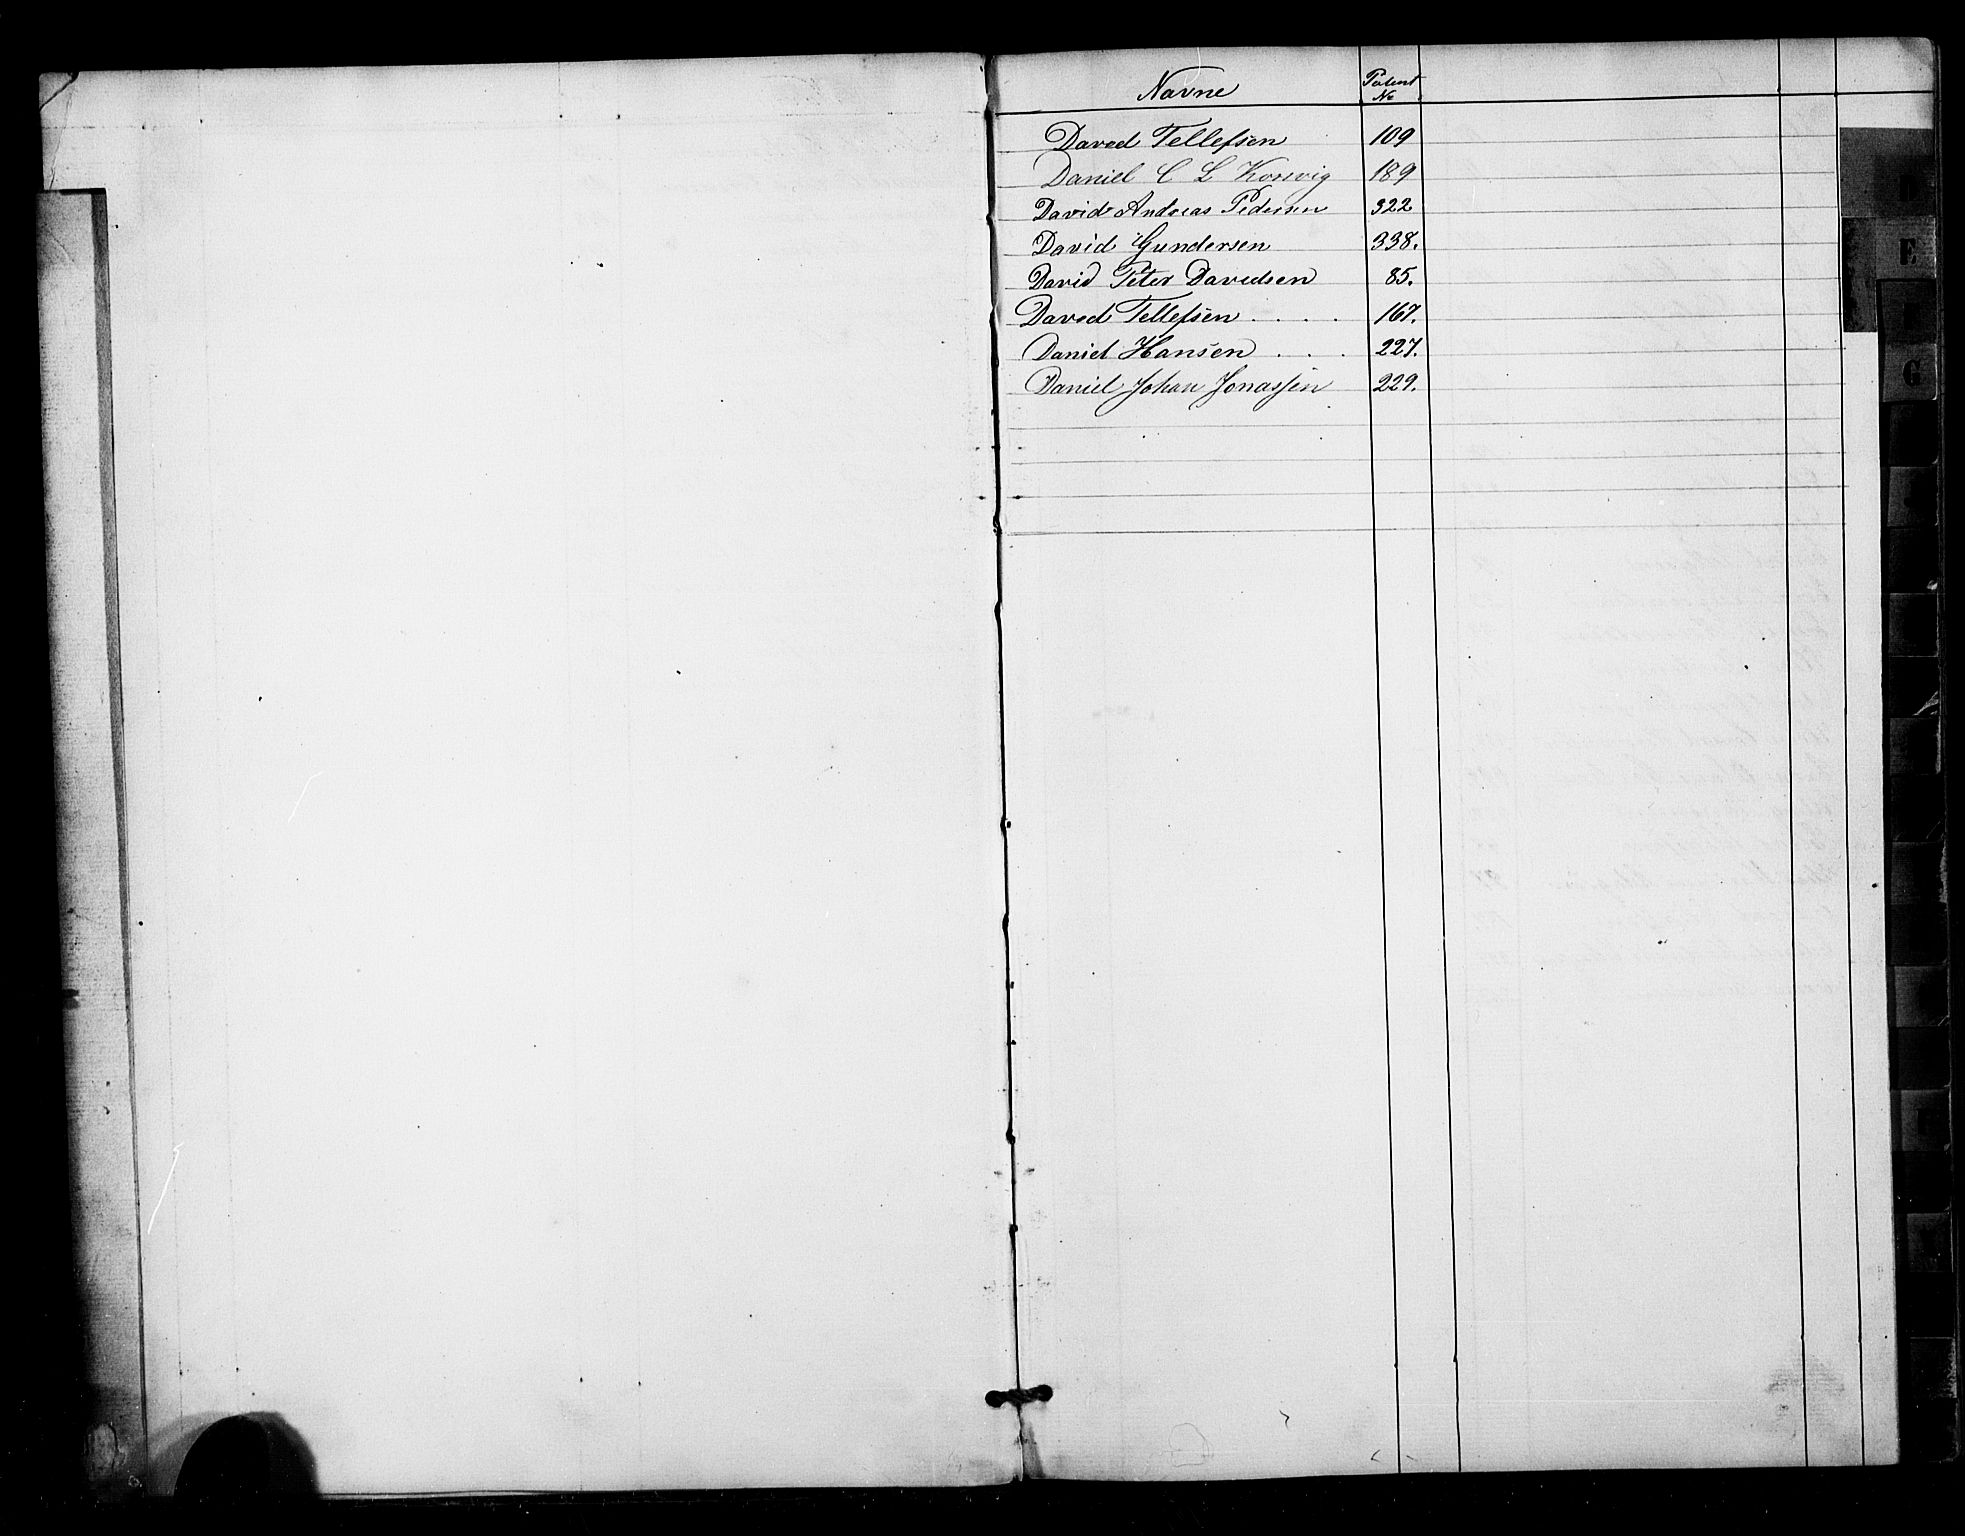 Navne Patent No
David Tellefsen 109
Daniel C L Korsvig 189
David Andreas Pedersen 322
David Gundersen 338.
David Peter Davidsen 85.
David Tellefsen . . . . 167.
Daniel Hansen . . . 227.
Daniel Johan Jonassen 229.
D
E
F
G